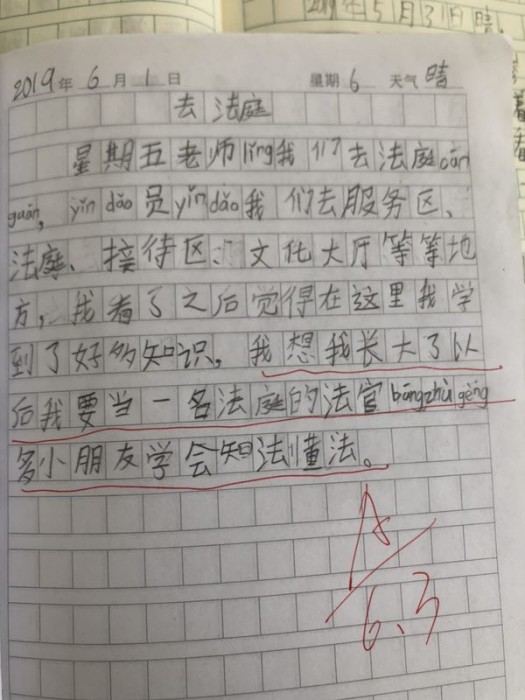 2019年5月31日晴
2019年6月1日 星期6 天气晴
去法庭
星期五老师lǐng我们去法庭cān
guān，yǐn dǎo员yǐn dǎo我们去服务区、
法庭、接待区、文化大厅等等地
方，我看了之后觉得在这里我学
到了好多知识，我想我长大了以
后我要当一名法庭的法官bāngzhù gèng
多小朋友学会知法懂法。
A
6.3